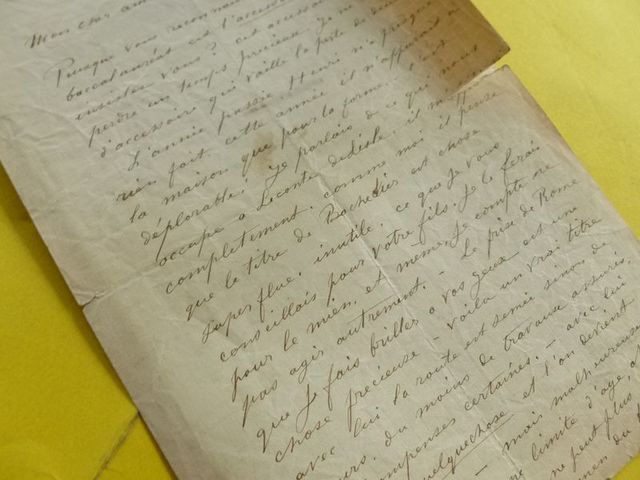 Mon cher am
Puisque vous reconnai
baccalauréat est l'accessoi
insistez vous? cet accessoi
perdre un temps précieux. Je n
d'accessoire qui vaille la perte de deux
L'année passée, Henri n'a presque
rien fait cette année il n'apparait à
la maison que pour la forme, c'est
déplorable. Je parlais de ce qui nous
occupe à Leconte de Lisle, il m'appr
complètement, comme moi il pense
que le titre de Bachelier est chose
superflue, inutile. ce que je vous
conseillais pour votre fils, je le ferais
pour le mien, et même je compte ne
pas agir autrement. - Le prix de Rome
que je fais briller à vos yeux est une
chose précieuse - voilà un vrai titre
avec lui la route est semée sinon de
urs, du moins de travaux assurés,
mpenses certaines. - avec lui
quelquechose et l'on devient
- mais malheureuse
e limite d'age, a
ne peut plus
men du